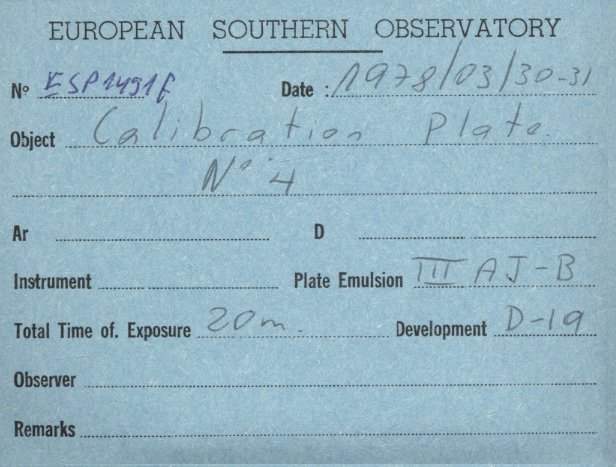 EUROPEAN SOUTHERN OBSERVATORY
Nº ESP1491F Date : 1978/03/30-31
Object Calibration Plate.
Nº 4
Ar D
Instrument Plate Emulsion III AJ-B
Total Time of. Exposure 20m. Development D-19
Observer
Remarks